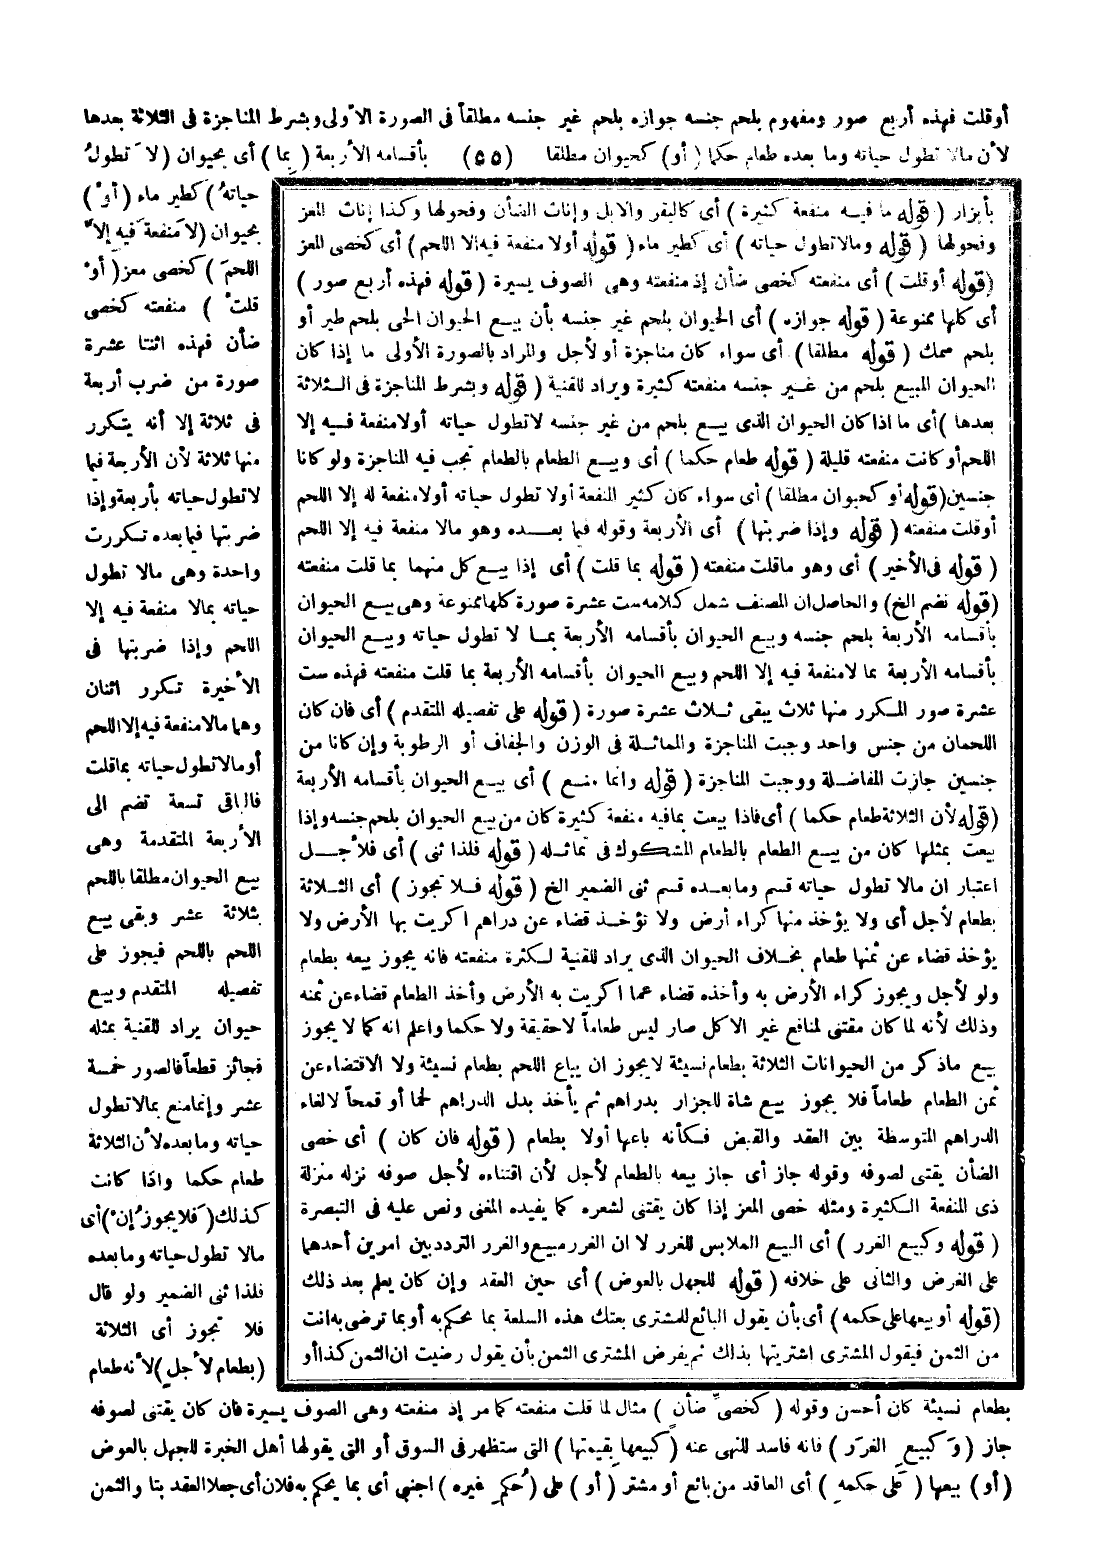 أوقلت فهذه أربع صور ومفهوم بلحم جنسه جوازه بلحم غير جنسه مطلقاً فى الصورة الأولى وبشرط المناجزة فى الثلاثة بعدها
لأن مالا تطول حياته وما بعده طعام حكما (أو) كحيوان مطلقا (٥٥) بأقسامه الأربعة (بما) أى بحيوان (لا تطولُ
حياتهُ) كطير ماء (أوْ)
بحيوان (لا منفعةَ فيه إلاَّ
اللحمَ) كخصى معز (أوْ
قلتْ) منفعته كخصى
ضأن فهذه اثنتا عشرة
صورة من ضرب أربعة
فى ثلاثة إلا أنه يتكرر
منها ثلاثة لأن الأربعة فيما
لا تطول حياته بأربعة وإذا
ضربتها فيما بعده تكررت
واحدة وهى مالا تطول
حياته بمالا منفعة فيه إلا
اللحم وإذا ضربتها فى
الأخيرة تكرر اثنان
وهما مالا منفعة فيه إلا اللحم
أو مالا تطول حياته بما قلت
فالباقى تسعة تضم الى
الأربعة المتقدمة وهى
بيع الحيوان مطلقا باللحم
بثلاثة عشر وبقى بيع
اللحم باللحم فيجوز على
تفصيله المتقدم وبيع
حيوان يراد للقنية بمثله
فجائز قطعاً فالصور خمسة
عشر وإنما منع بمالا تطول
حياته وما بعده لأن الثلاثة
طعام حكما واذا كانت
كذلك (فلا يجوزُ إنْ) أى
مالا تطول حياته وما بعده
فلذا ثنى الضمير ولو قال
فلا تجوز أى الثلاثة
(بطعام لأجلٍ) لأنه طعام
بأبزار (قوله ما فيه منفعة كثيرة) أى كالبقر والابل وإناث الضأن وفحولها وكذا إناث المعز
وفحولها (قوله ومالا تطول حياته) أى كطير ماء (قوله أولا منفعة فيه إلا اللحم) أى كخصى المعز
(قوله أو قلت) أى منفعته كخصى ضأن إذ منفعته وهى الصوف يسيرة (قوله فهذه أربع صور)
أى كلها ممنوعة (قوله جوازه) أى الحيوان بلحم غير جنسه بأن بيع الحيوان الحى بلحم طير أو
بلحم سمك (قوله مطلقا) أى سواء كان مناجزة أو لأجل والمراد بالصورة الأولى ما إذا كان
الحيوان المبيع بلحم من غير جنسه منفعته كثيرة ويراد للقنية (قوله وبشرط المناجزة فى الثلاثة
بعدها) أى ما اذا كان الحيوان الذى بيع بلحم من غير جنسه لا تطول حياته أولا منفعة فيه إلا
اللحم أو كانت منفعته قليلة (قوله طعام حكما) أى وبيع الطعام بالطعام تجب فيه المناجزة ولو كانا
جنسين (قوله أو كحيوان مطلقا) أى سواء كان كثير المنفعة أولا تطول حياته أولا منفعة له إلا اللحم
أو قلت منفعته (قوله وإذا ضربتها) أى الأربعة وقوله فيما بعده وهو مالا منفعة فيه إلا اللحم
(قوله فى الأخير) أى وهو ما قلت منفعته (قوله بما قلت) أى إذا بيع كل منهما بما قلت منفعته
(قوله تضم الخ) والحاصل ان المصنف شمل كلامه ست عشرة صورة كلها ممنوعة وهى بيع الحيوان
بأقسامه الأربعة بلحم جنسه وبيع الحيوان بأقسامه الأربعة بما لا تطول حياته وبيع الحيوان
بأقسامه الأربعة بما لا منفعة فيه إلا اللحم وبيع الحيوان بأقسامه الأربعة بما قلت منفعته فهذه ست
عشرة صور المكرر منها ثلاث يبقى ثلاث عشرة صورة (قوله على تفصيله المتقدم) أى فان كان
اللحمان من جنس واحد وجبت المناجزة والمماثلة فى الوزن والجفاف أو الرطوبة وإن كانا من
جنسين جازت المفاضلة ووجبت المناجزة (قوله وانما منع) أى بيع الحيوان بأقسامه الأربعة
(قوله لأن الثلاثة طعام حكما) أى فاذا بيعت بما فيه منفعة كثيرة كان من بيع الحيوان بلحم جنسه وإذا
بيعت بمثلها كان من بيع الطعام بالطعام المشكوك فى تماثله (قوله فلذا ثنى) أى فلأجل
اعتبار ان مالا تطول حياته قسم وما بعده قسم ثنى الضمير الخ (قوله فلا تجوز) أى الثلاثة
بطعام لأجل أى ولا يؤخذ منها كراء أرض ولا تؤخذ قضاء عن دراهم اكريت بها الأرض ولا
يؤخذ قضاء عن ثمنها طعام بخلاف الحيوان الذى يراد للقنية لكثرة منفعته فانه يجوز بيعه بطعام
ولو لأجل ويجوز كراء الأرض به وأخذه قضاء عما اكريت به الأرض وأخذ الطعام قضاء عن ثمنه
وذلك لأنه لما كان مقتنى لمنافع غير الاكل صار ليس طعاماً لا حقيقة ولا حكما واعلم انه كما لا يجوز
بيع ما ذكر من الحيوانات الثلاثة بطعام نسيئة لا يجوز ان يباع اللحم بطعام نسيئة ولا الاقتضاء عن
ثمن الطعام طعاماً فلا يجوز بيع شاة للجزار بدراهم ثم يأخذ بدل الدراهم لحما أو قمحاً لالغاء
الدراهم المتوسطة بين العقد والقبض فكأنه باعها أولا بطعام (قوله فان كان) أى خصى
الضأن يقتنى لصوفه وقوله جاز أى جاز بيعه بالطعام لأجل لأن اقتناءه لأجل صوفه نزله منزلة
ذى المنفعة الكثيرة ومثله خصى المعز إذا كان يقتنى لشعره كما يفيده المغنى ونص عليه فى التبصرة
(قوله وكبيع الغرر) أى البيع الملابس للغرر لا ان الغرر مبيع والغرر التردد بين امرين أحدهما
على الغرض والثانى على خلافه (قوله للجهل بالعوض) أى حين العقد وإن كان يعلم بعد ذلك
(قوله أو بيعها على حكمه) أى بأن يقول البائع للمشترى بعتك هذه السلعة بما تحكم به أو بما ترضى به انت
من الثمن فيقول المشترى اشتريتها بذلك ثم يفرض المشترى الثمن بأن يقول رضيت ان الثمن كذا أو
بطعام نسيئة كان أحسن وقوله (كخصىِّ ضأنٍ) مثال لما قلت منفعته كما مر إذ منفعته وهى الصوف يسيرة فان كان يقتنى لصوفه
جاز (وَكبيعِ الغرَر) فانه فاسد للنهى عنه (كبيعها بقيمتها) التى ستظهر فى السوق أو التى يقولها أهل الخبرة للجهل بالعوض
(أو) بيعها (عَلى حكمهِ) أى العاقد من بائع أو مشتر (أو) على (حُكمِ غيره) اجنبى أى بما يحكم به فلان أى جعلا العقد بتا والثمن